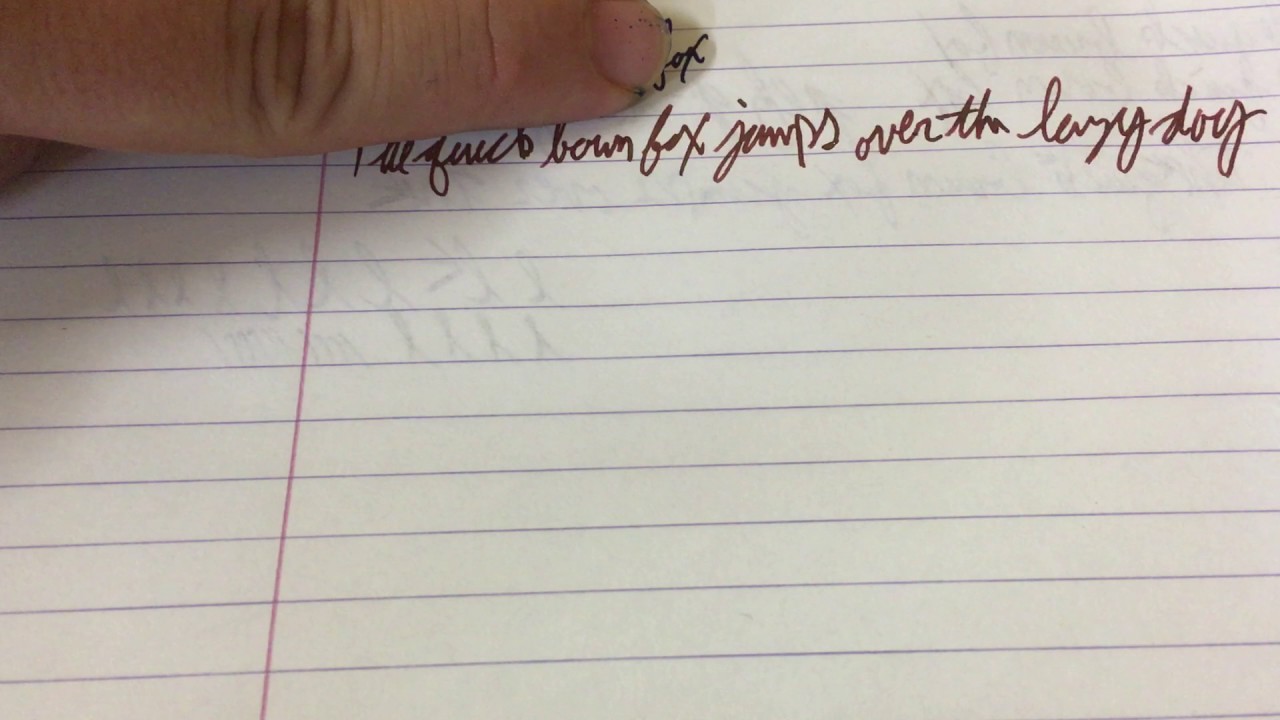 fox
The quick bown fox jumps over the lazy dog